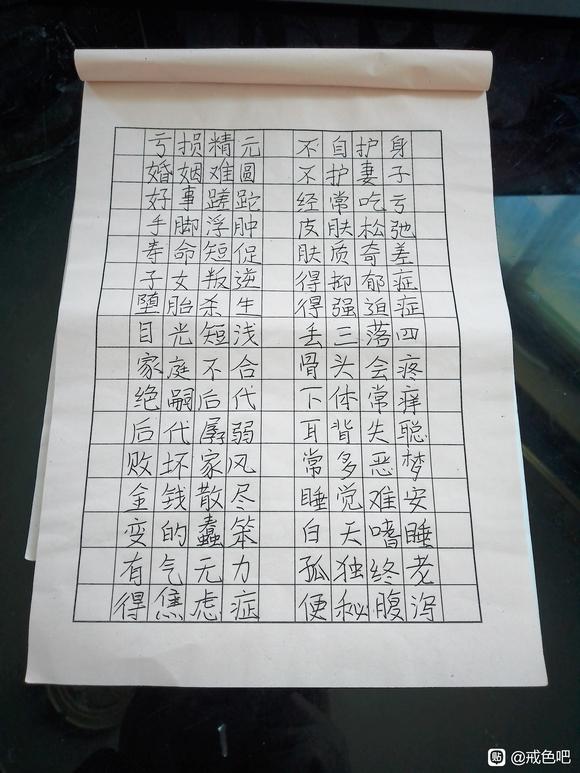 亏损精元 不自护身
婚姻难圆 不护妻子
好事蹉跎 经常吃亏
手脚浮肿 皮肤松弛
寿命短促 肤质奇差
子女叛逆 得抑郁症
堕胎杀生 得强迫症
目光短浅 丢三落四
家庭不合 骨头会疼
绝嗣后代 下体常痒
后代孱弱 耳背失聪
败坏家风 常多恶梦
金钱散尽 睡觉难安
变的蠢笨 白天嗜睡
有气无力 孤独终老
得焦虑症 便秘腹泻
贴 @戒色吧